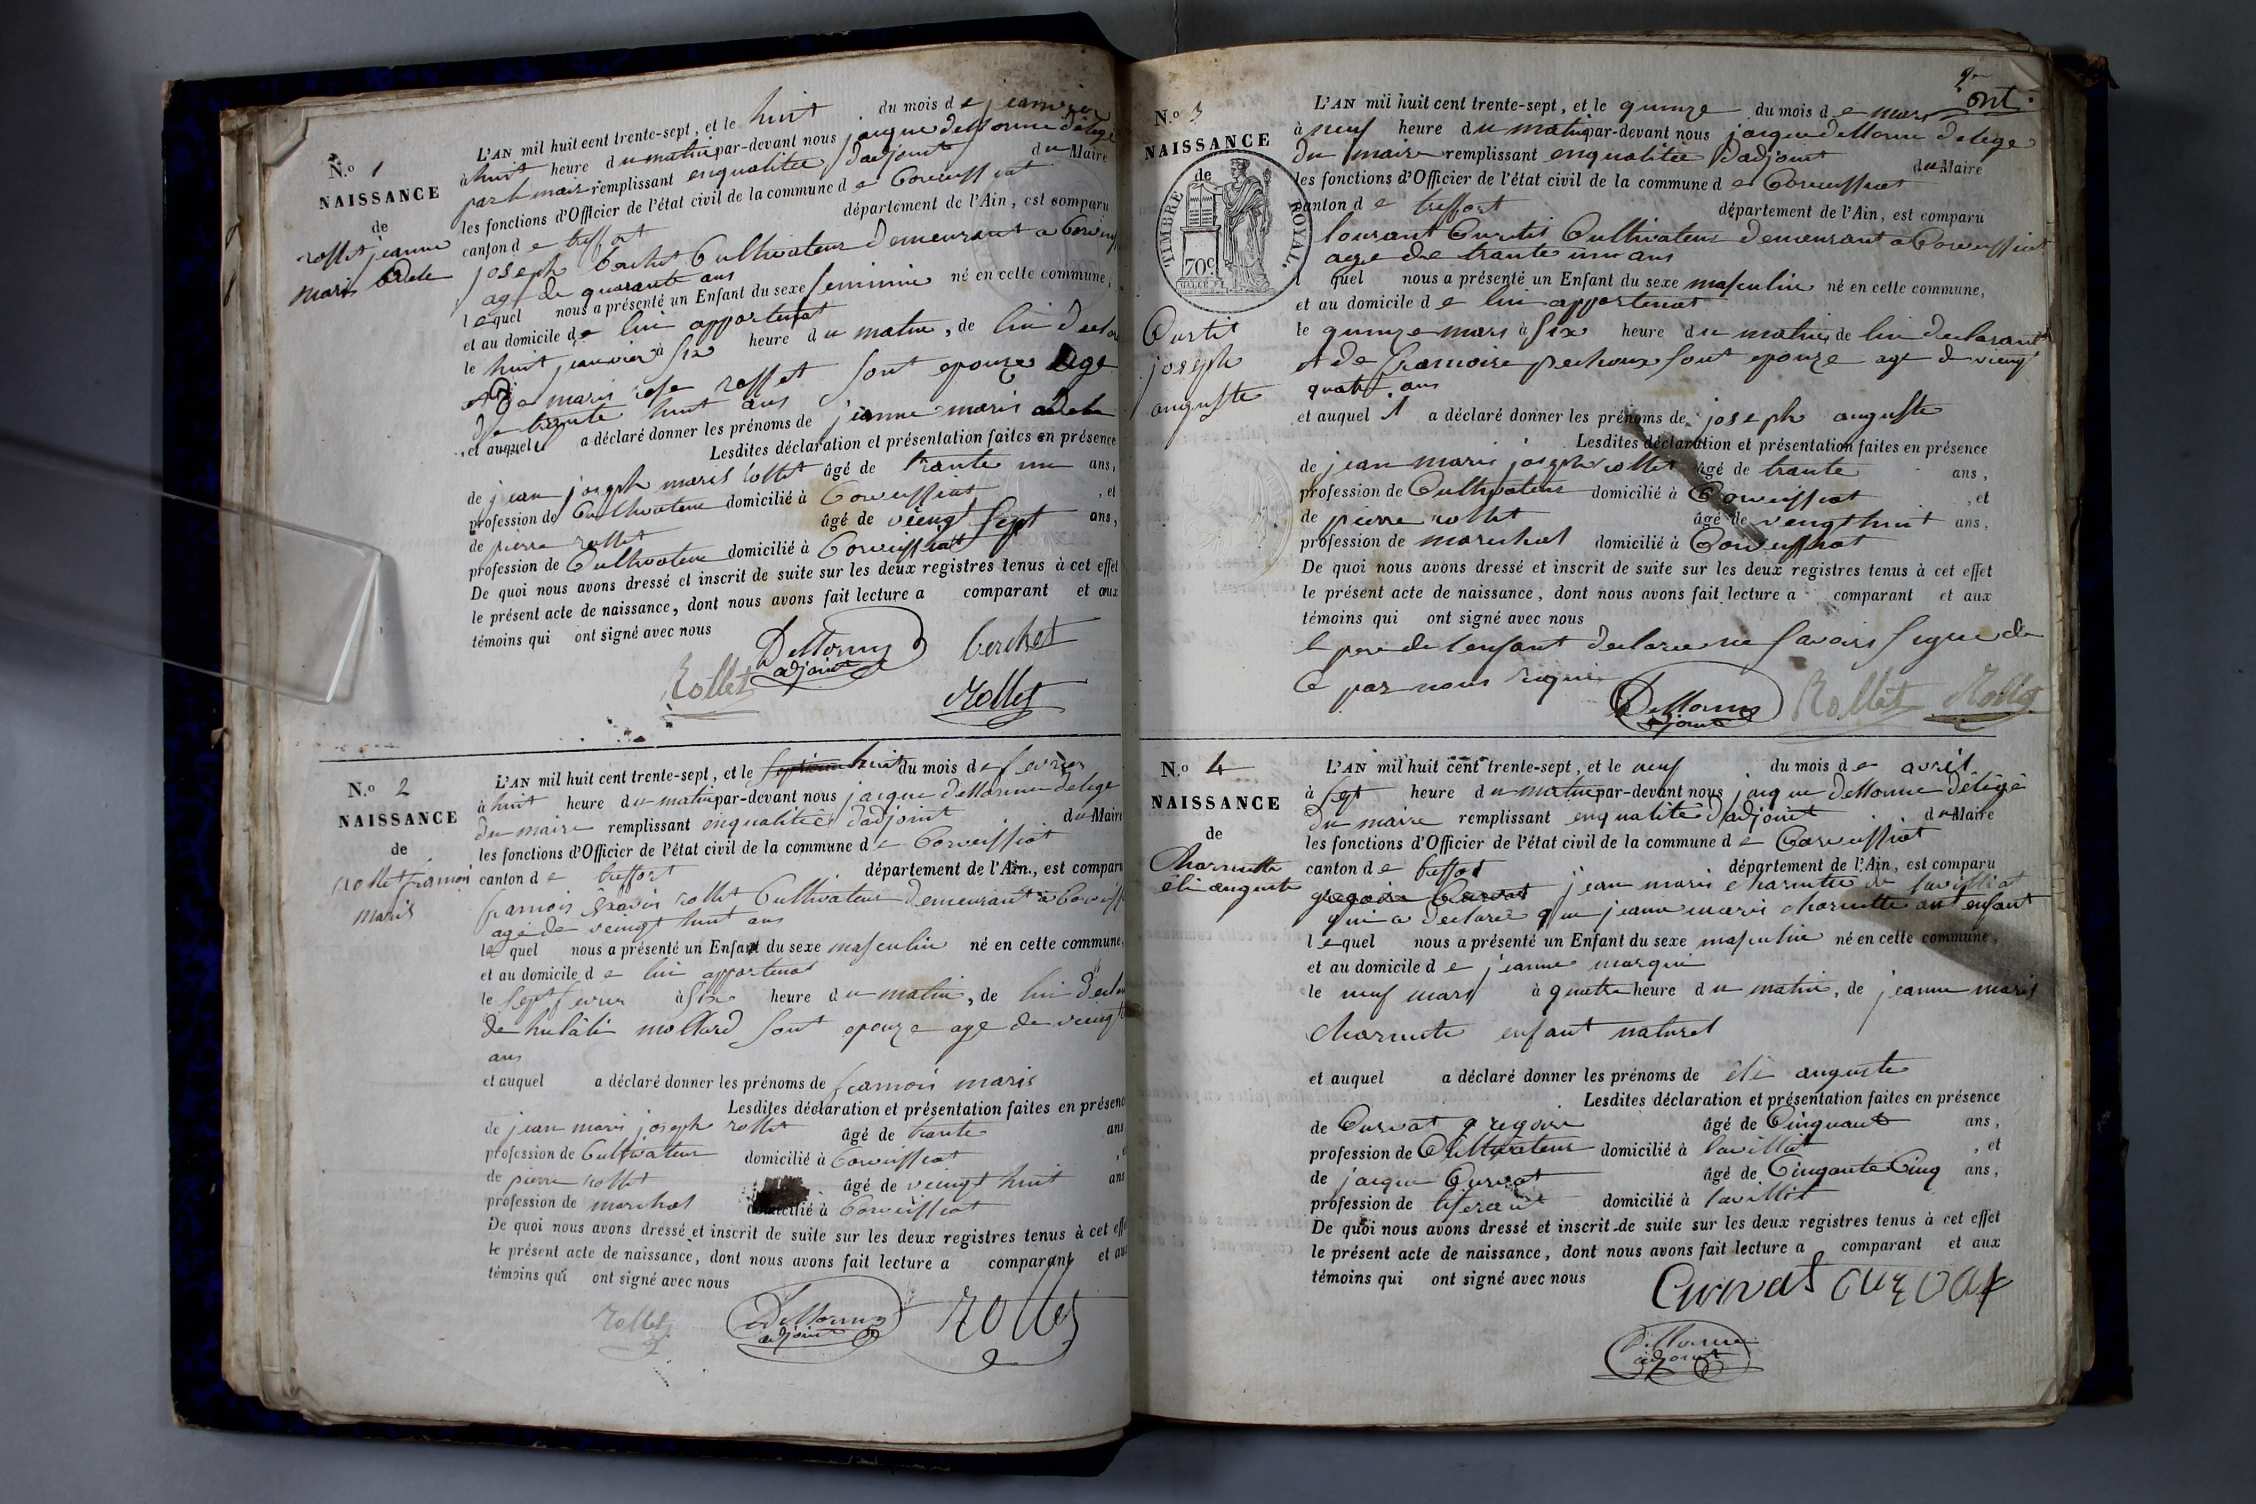 N.o 1
NAISSANCE
de
rollet jeanne
marie Adele
L'AN mil huit cent trente-sept, et le huit du mois de janvier
à huit heure du matin par-devant nous jacque dellorme délégé
par le maire remplissant enqualitée d'adjoint du Maire
les fonctions d'Officier de l'état civil de la commune de Corveissiat
canton de treffort département de l'Ain, est comparu
joseph berchet Cultivateur demeurant a Corveiss
agé de quarante ans
lequel nous a présenté un Enfant du sexe feminin né en cette commune,
et au domicile de lui appartenat
le huit janvier à six heure du matin, de lui declar
et De marie rose rollet sont epouze agé
de trante huit ans
et auquel il a déclaré donner les prénoms de jeanne marie adele
Lesdites déclaration et présentation faites en présence
de jean joseph marie rollet âgé de trante un ans,
profession de Cultivateur domicilié à Corveissiat, et
de pierre rollet âgé de veingt sept ans,
profession de Cultivateur domicilié à Corveissiat
De quoi nous avons dressé et inscrit de suite sur les deux registres tenus à cet effet
le présent acte de naissance, dont nous avons fait lecture a comparant et aux
témoins qui ont signé avec nous
Dellorme berchet
adjoint
Rollet Rollet
N.o 2
NAISSANCE
de
rollet framois
marie
L'AN mil huit cent trente-sept, et le huit du mois de fevrier
à huit heure du matin par-devant nous jacque dellorme delege
du maire remplissant enqualitée dadjoint du Maire
les fonctions d'Officier de l'état civil de la commune de Corveissiat
canton de treffort département de l'Ain., est comparu
framois xavier rollet Cultivateur demeurant a Corveiss
agé de veingt huit ans
lequel nous a présenté un Enfant du sexe masculin né en cette commune,
et au domicile de lui appartenat
le sept fevrier à six heure du matin, de lui decla
de hulalie mollard sont epouze age de veingt
ans
et auquel a déclaré donner les prénoms de framois marie
Lesdites déclaration et présentation faites en présenc
de jean marie joseph rollet âgé de trante ans
profession de Cultivateur domicilié à Corveissiat
de pierre rollet âgé de veingt huit ans
profession de marechal domicilié à Corveissiat
De quoi nous avons dressé et inscrit de suite sur les deux registres tenus à cet eff
le présent acte de naissance, dont nous avons fait lecture a comparant et au
témoins qui ont signé avec nous
rollet Dellorme Rollet
adjoint
N.o 3
NAISSANCE
de
TIMBRE ROYAL.
70c
Curtit
joseph
auguste
L'AN mil huit cent trente-sept, et le quinze du mois de mars ont.
à neuf heure du matin par-devant nous jacque dellorme delege
du maire remplissant enqualitée d'adjoint du Maire
les fonctions d'Officier de l'état civil de la commune de Corveissiat
canton de treffort département de l'Ain, est comparu
lourant Curtit Cultivateur demeurant a Corveissiat
agé de trante un ans
l quel nous a présenté un Enfant du sexe masculin né en cette commune,
et au domicile de lui appartenat
le quinze mars à six heure du matin, de lui declarant
et de framoise pechoux sont epouze agé de vieng
quatre ans
et auquel il a déclaré donner les prénoms de joseph auguste
Lesdites déclaration et présentation faites en présence
de jean marie joseph rollet âgé de trante ans,
profession de Cultivateur domicilié à Corveissiat, et
de pierre rollet âgé de veingt huit ans,
profession de marechal domicilié à Corveissiat
De quoi nous avons dressé et inscrit de suite sur les deux registres tenus à cet effet
le présent acte de naissance, dont nous avons fait lecture a comparant et aux
témoins qui ont signé avec nous
le pere de lenfant declare ne savoir signe de
Ce par nous requi
Dellorme Rollet Rollet
adjoint
N.o 4
NAISSANCE
de
Charnette
élie auguste
L'AN mil huit cent trente-sept, et le neuf du mois de avril
à sept heure du matin par-devant nous jacque dellorme délégé
du maire remplissant enqualité d'adjoint du Maire
les fonctions d'Officier de l'état civil de la commune de Corveissiat
canton de treffort département de l'Ain, est comparu
gregoire Curvat jeanne marie charnette de lavilliat
qui a declarer que jeanne marie charnette ant enfant
lequel nous a présenté un Enfant du sexe masculin né en cette commune,
et au domicile de jeanne marque
le neuf mars à quatre heure du matin, de jeanne marie
charnette enfant naturel
et auquel a déclaré donner les prénoms de élie auguste
Lesdites déclaration et présentation faites en présence
de Curvat gregoire âgé de Cinquante ans,
profession de Cultivateur domicilié à lavilliat, et
de jacque Curvat âgé de Cinqante Cinq ans,
profession de tiserant domicilié à lavilliat
De quoi nous avons dressé et inscrit de suite sur les deux registres tenus à cet effet
le présent acte de naissance, dont nous avons fait lecture a comparant et aux
témoins qui ont signé avec nous
Curvat curvat
Dellorme
adjoint